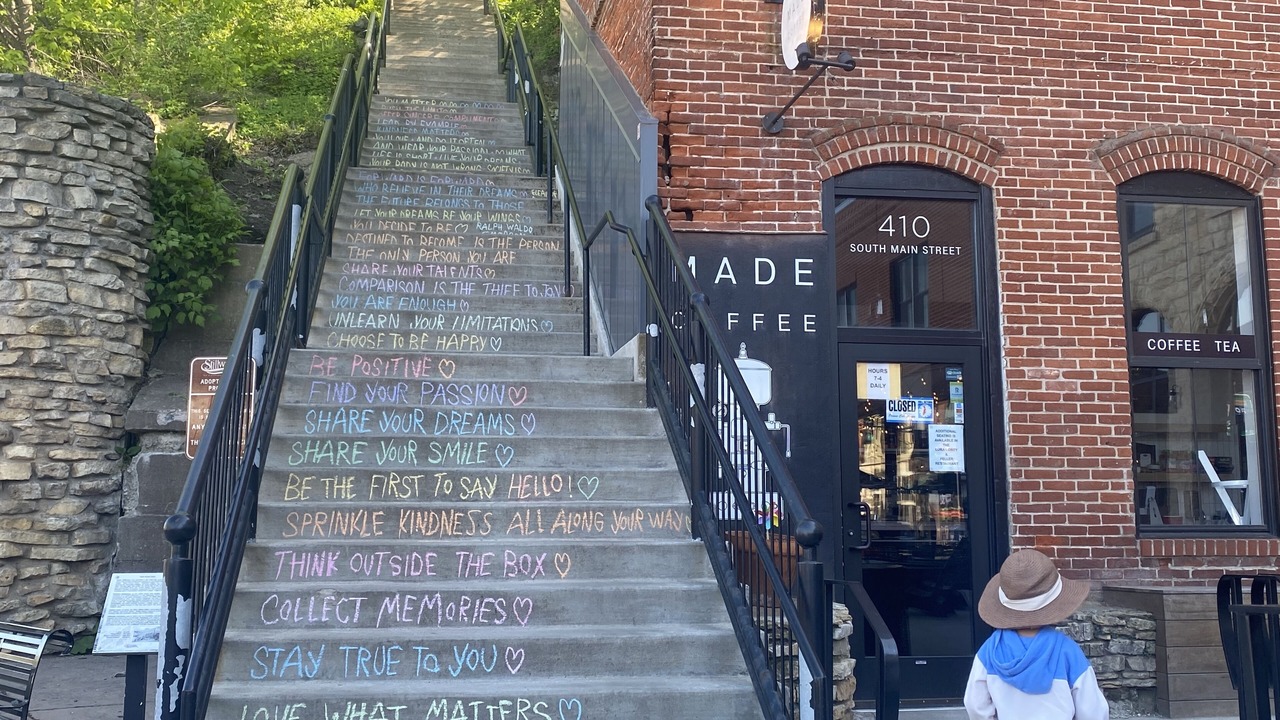 YOU MATTER
LEAD BY EXAMPLE
KINDNESS MATTERS
LIFE IS SHORT. LIVE YOUR DREAMS
AND WEAR YOUR PASSION
YOUR BODY IS NOT
FORWARD IS FORWARD
WHO BELIEVE IN THEIR DREAMS
THE FUTURE BELONGS TO THOSE
LET YOUR DREAMS BE YOUR WINGS
YOU DECIDE TO BE RALPH WALDO
DESTINED TO BECOME IS THE PERSON
THE ONLY PERSON YOU ARE
SHARE YOUR TALENTS
COMPARISON IS THE THIEF TO JOY
YOU ARE ENOUGH
UNLEARN YOUR LIMITATIONS
CHOOSE TO BE HAPPY
BE POSITIVE
FIND YOUR PASSION
SHARE YOUR DREAMS
SHARE YOUR SMILE
BE THE FIRST TO SAY HELLO!
SPRINKLE KINDNESS ALL ALONG YOUR WAY
THINK OUTSIDE THE BOX
COLLECT MEMORIES
STAY TRUE TO YOU
LOVE WHAT MATTERS
MADE
FFEE
410
SOUTH MAIN STREET
HOURS
7-4
DAILY
CLOSED
ADDITIONAL
SEATING IS
AVAILABLE IN
THE
COFFEE TEA